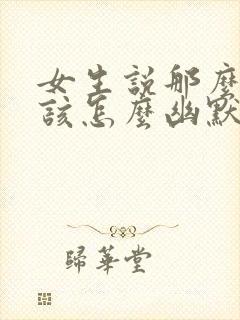 女生說那麼
該怎麼幽默
歸華堂